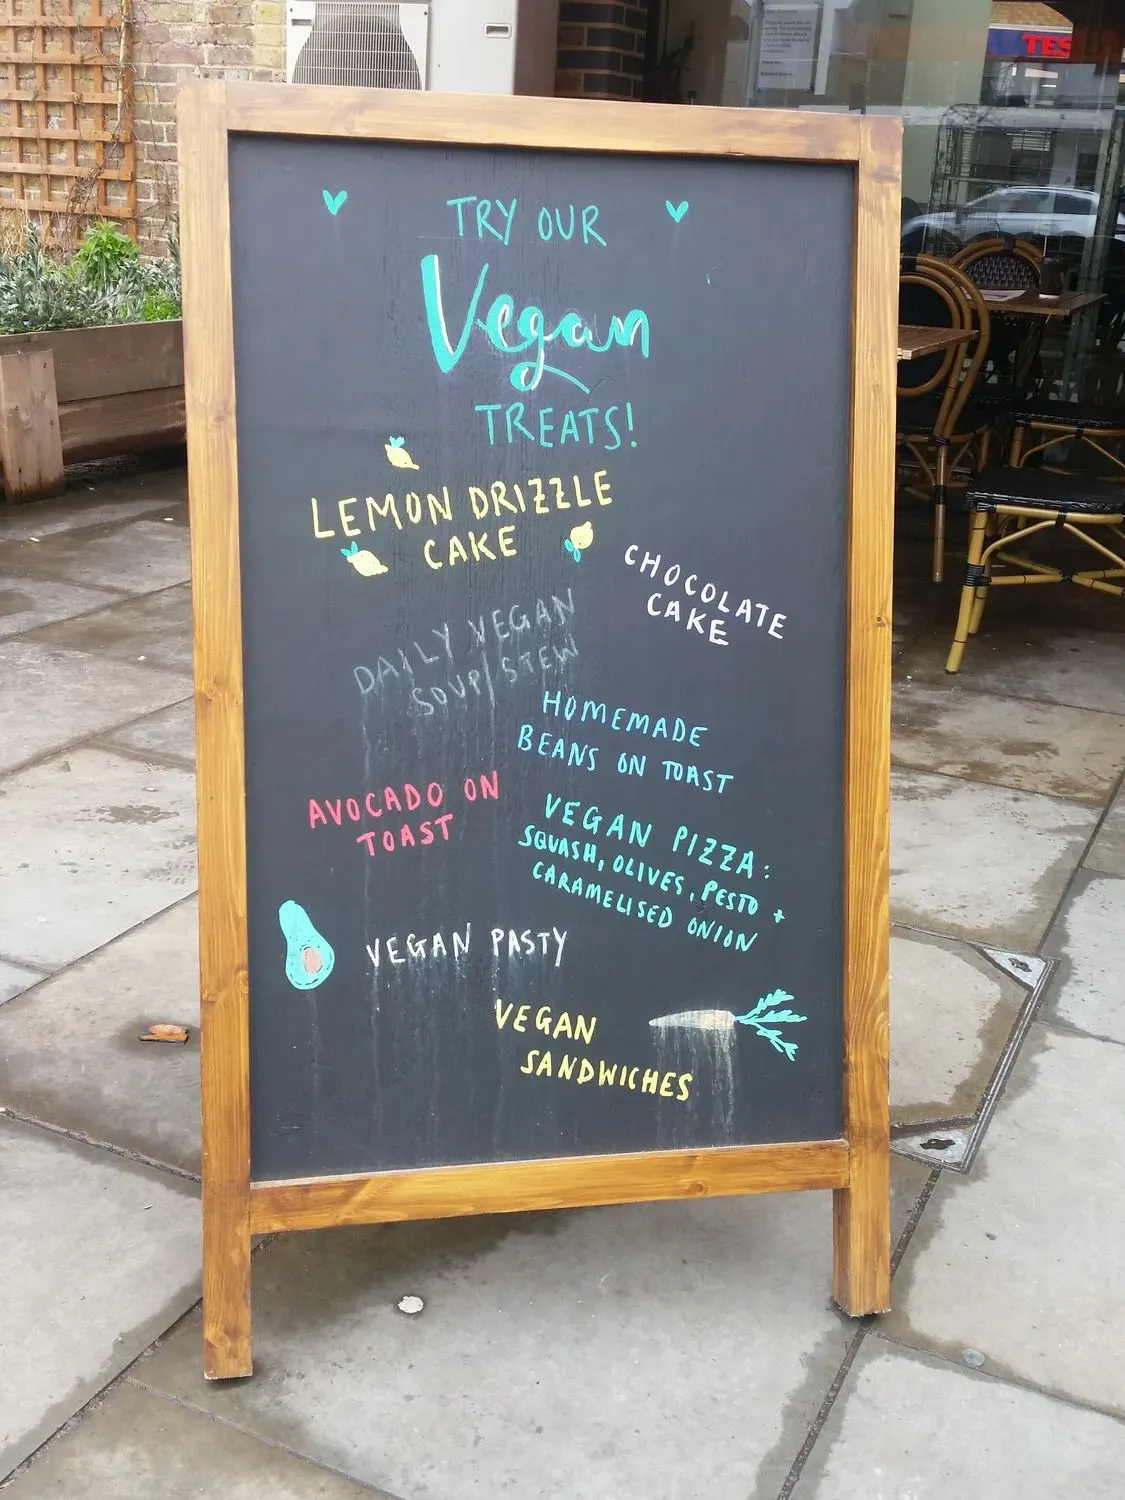 TRY OUR
Vegan
TREATS!
LEMON DRIZZLE
CAKE
CHOCOLATE
CAKE
DAILY VEGAN
SOUP/STEW
HOMEMADE
BEANS ON TOAST
AVOCADO ON
TOAST
VEGAN PIZZA:
SQUASH, OLIVES, PESTO +
CARAMELISED ONION
VEGAN PASTY
VEGAN
SANDWICHES